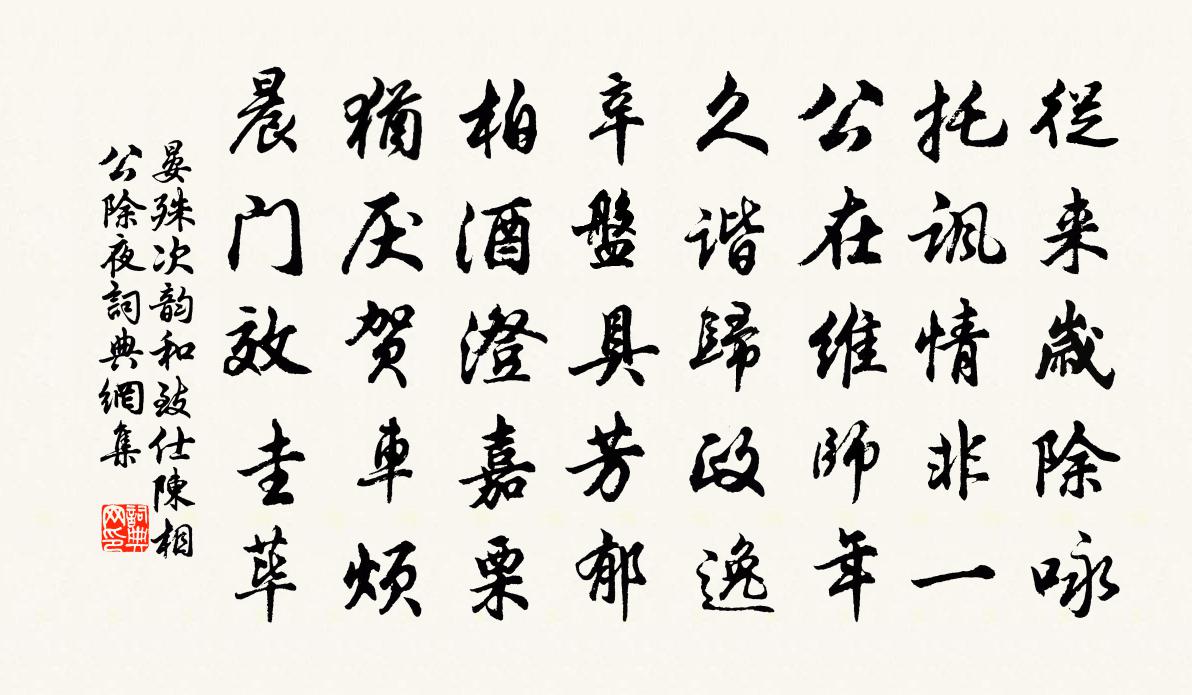 從来歲除咏
托諷情非一
公在維師年
久諧歸政逸
辛盤具芳郁
柏酒澄嘉栗
猶厌贺車煩
晨门效圭荜
晏殊次韵和致仕陳相
公除夜詞典網集
詞典网印